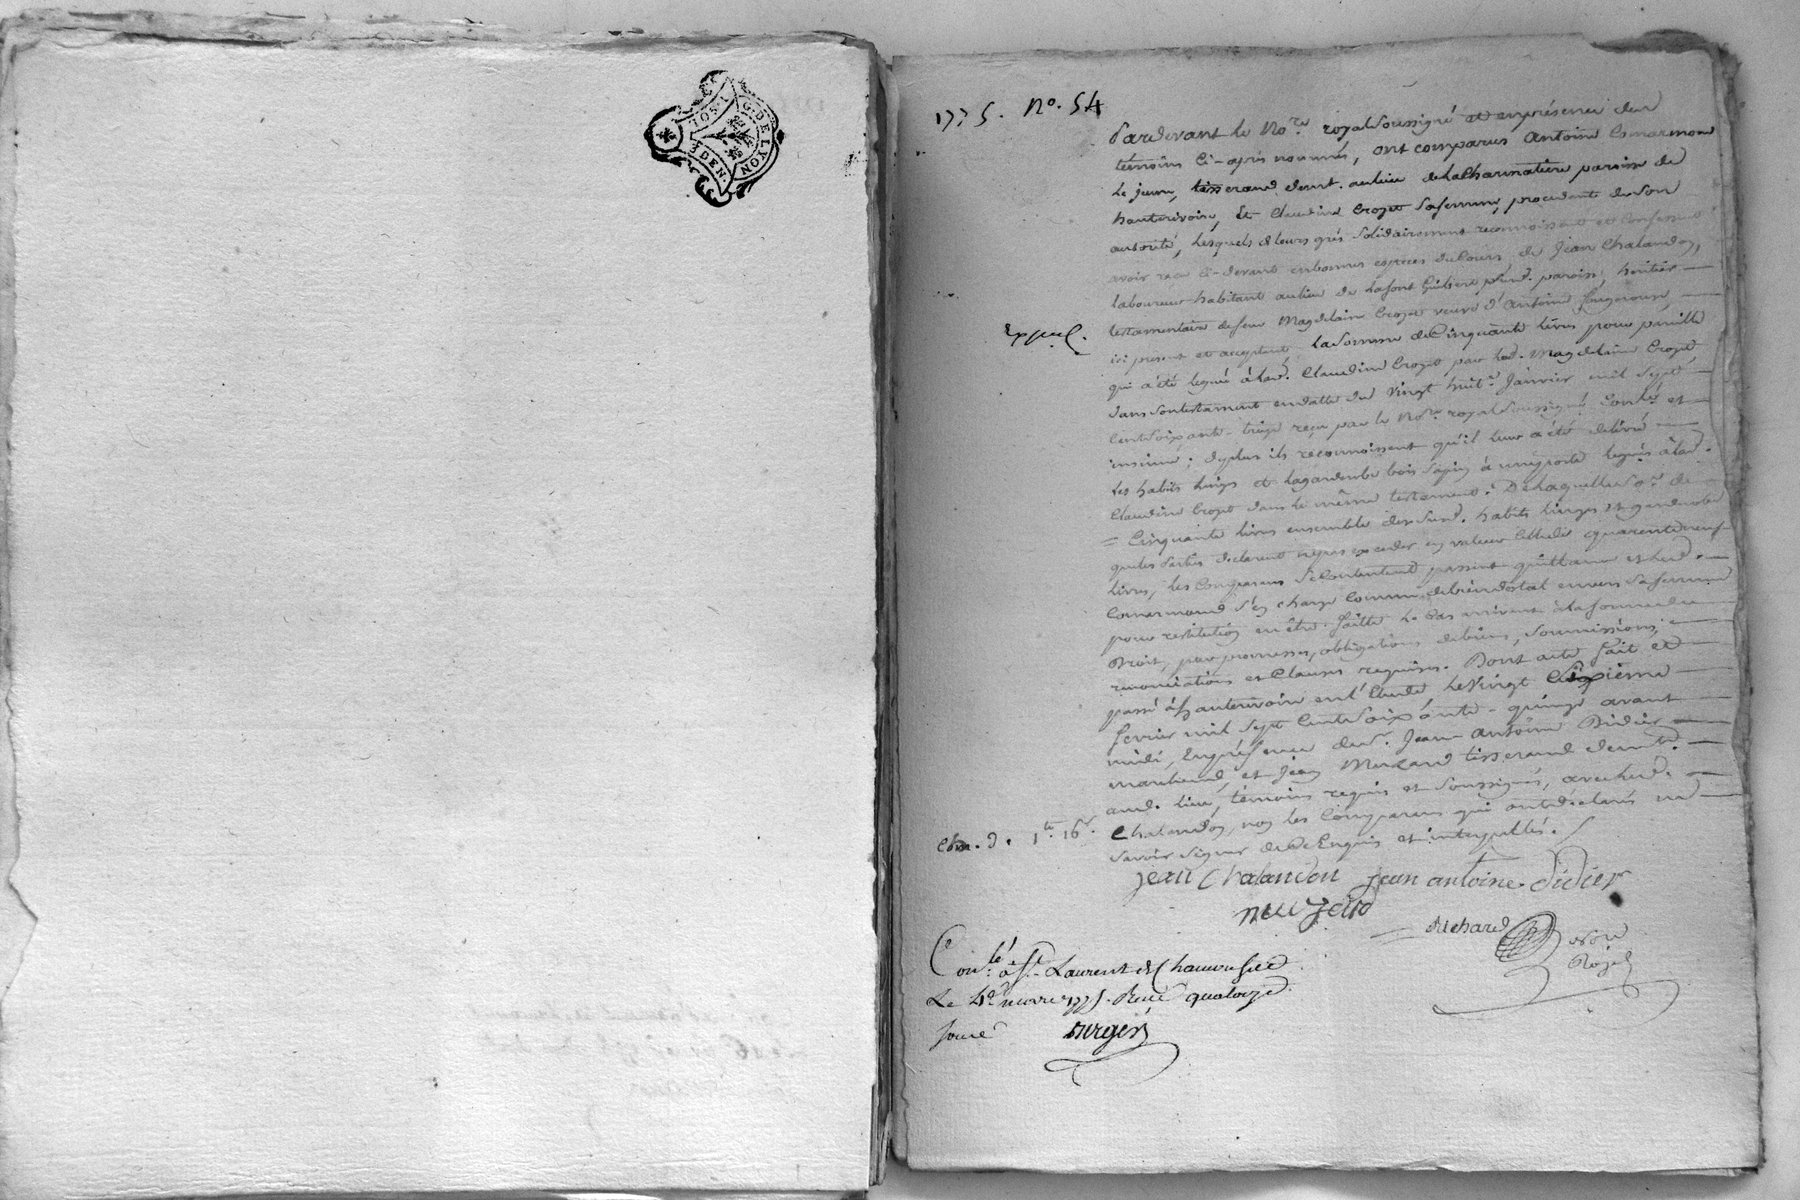 G. DE LYON
10 S. 1
3 DEN.
1775. No. 54
Pardevant le No.re royal soussigné et en présence des
témoins ci-après nommés, ont comparus Antoine Comarmond
le jeune, tisserand demt. au lieu de la Charmatière paroisse de
hauterivoire, Et Claudine Crozet sa femme, procedante de son
autorité, lesquels de leurs grés solidairement reconnoissent et confessent
avoir reçu ci-devant en bonnes especes du Cours, de Jean Chalandon,
laboureur habitant au lieu de Lafont paroisse, heritier
testamentaire de feue Magdelaine Crozet veuve d'Antoine fougerouse,
Exped.
ici present et acceptant la somme de Cinquante livres pour pareille
qui a été leguée à lad. Claudine Crozet par lad. Magdelaine Crozet
dans son testament en datte du Vingt huit.e Janvier mil sept
Cent soixante-treize reçu par le No.re royal soussigné Con.lé et
insinué; deplus ils reconnoissent qu'il leur a été delivré
les habits linges et la garderobe bois sapin à une porte legués à lad.
Claudine Crozet dans le même testament. De laquelle so.e de
Cinquante livres ensemble desd. habits linges et garderobe
que les parties declarent n'pas exceder en valeur Celle de quarante neuf
livres, les Comparans se contentent passent quittance et led.
Comarmond s'en charge comme de bien dotal envers sa femme
pour restitution en être faitte le Cas arrivant à la forme du
Droit, par promesses, obligations de biens, soumissions,
renonciations et Clauses requises. Dont acte fait et
passé à hauterivoire en l'Etude, le Vingt
fevrier mil sept Cent soixante-quinze avant
midi, En présence de s.r Jean Antoine Didier
marchand et Jean tisserand demt.
aud. lieu, témoins requis et soussignés, avec led.
1lt. 16s. Chalandon, non les Comparans qui ont déclarés ne
savoir signer de ce Enquis et interpellés.
Jean Chalandon Jean antoine Didier
Richard
No.re
Royal
Con.lé à St. Laurent de Chamousset
Le 4e mars 1775. Reçu quatorze
sous